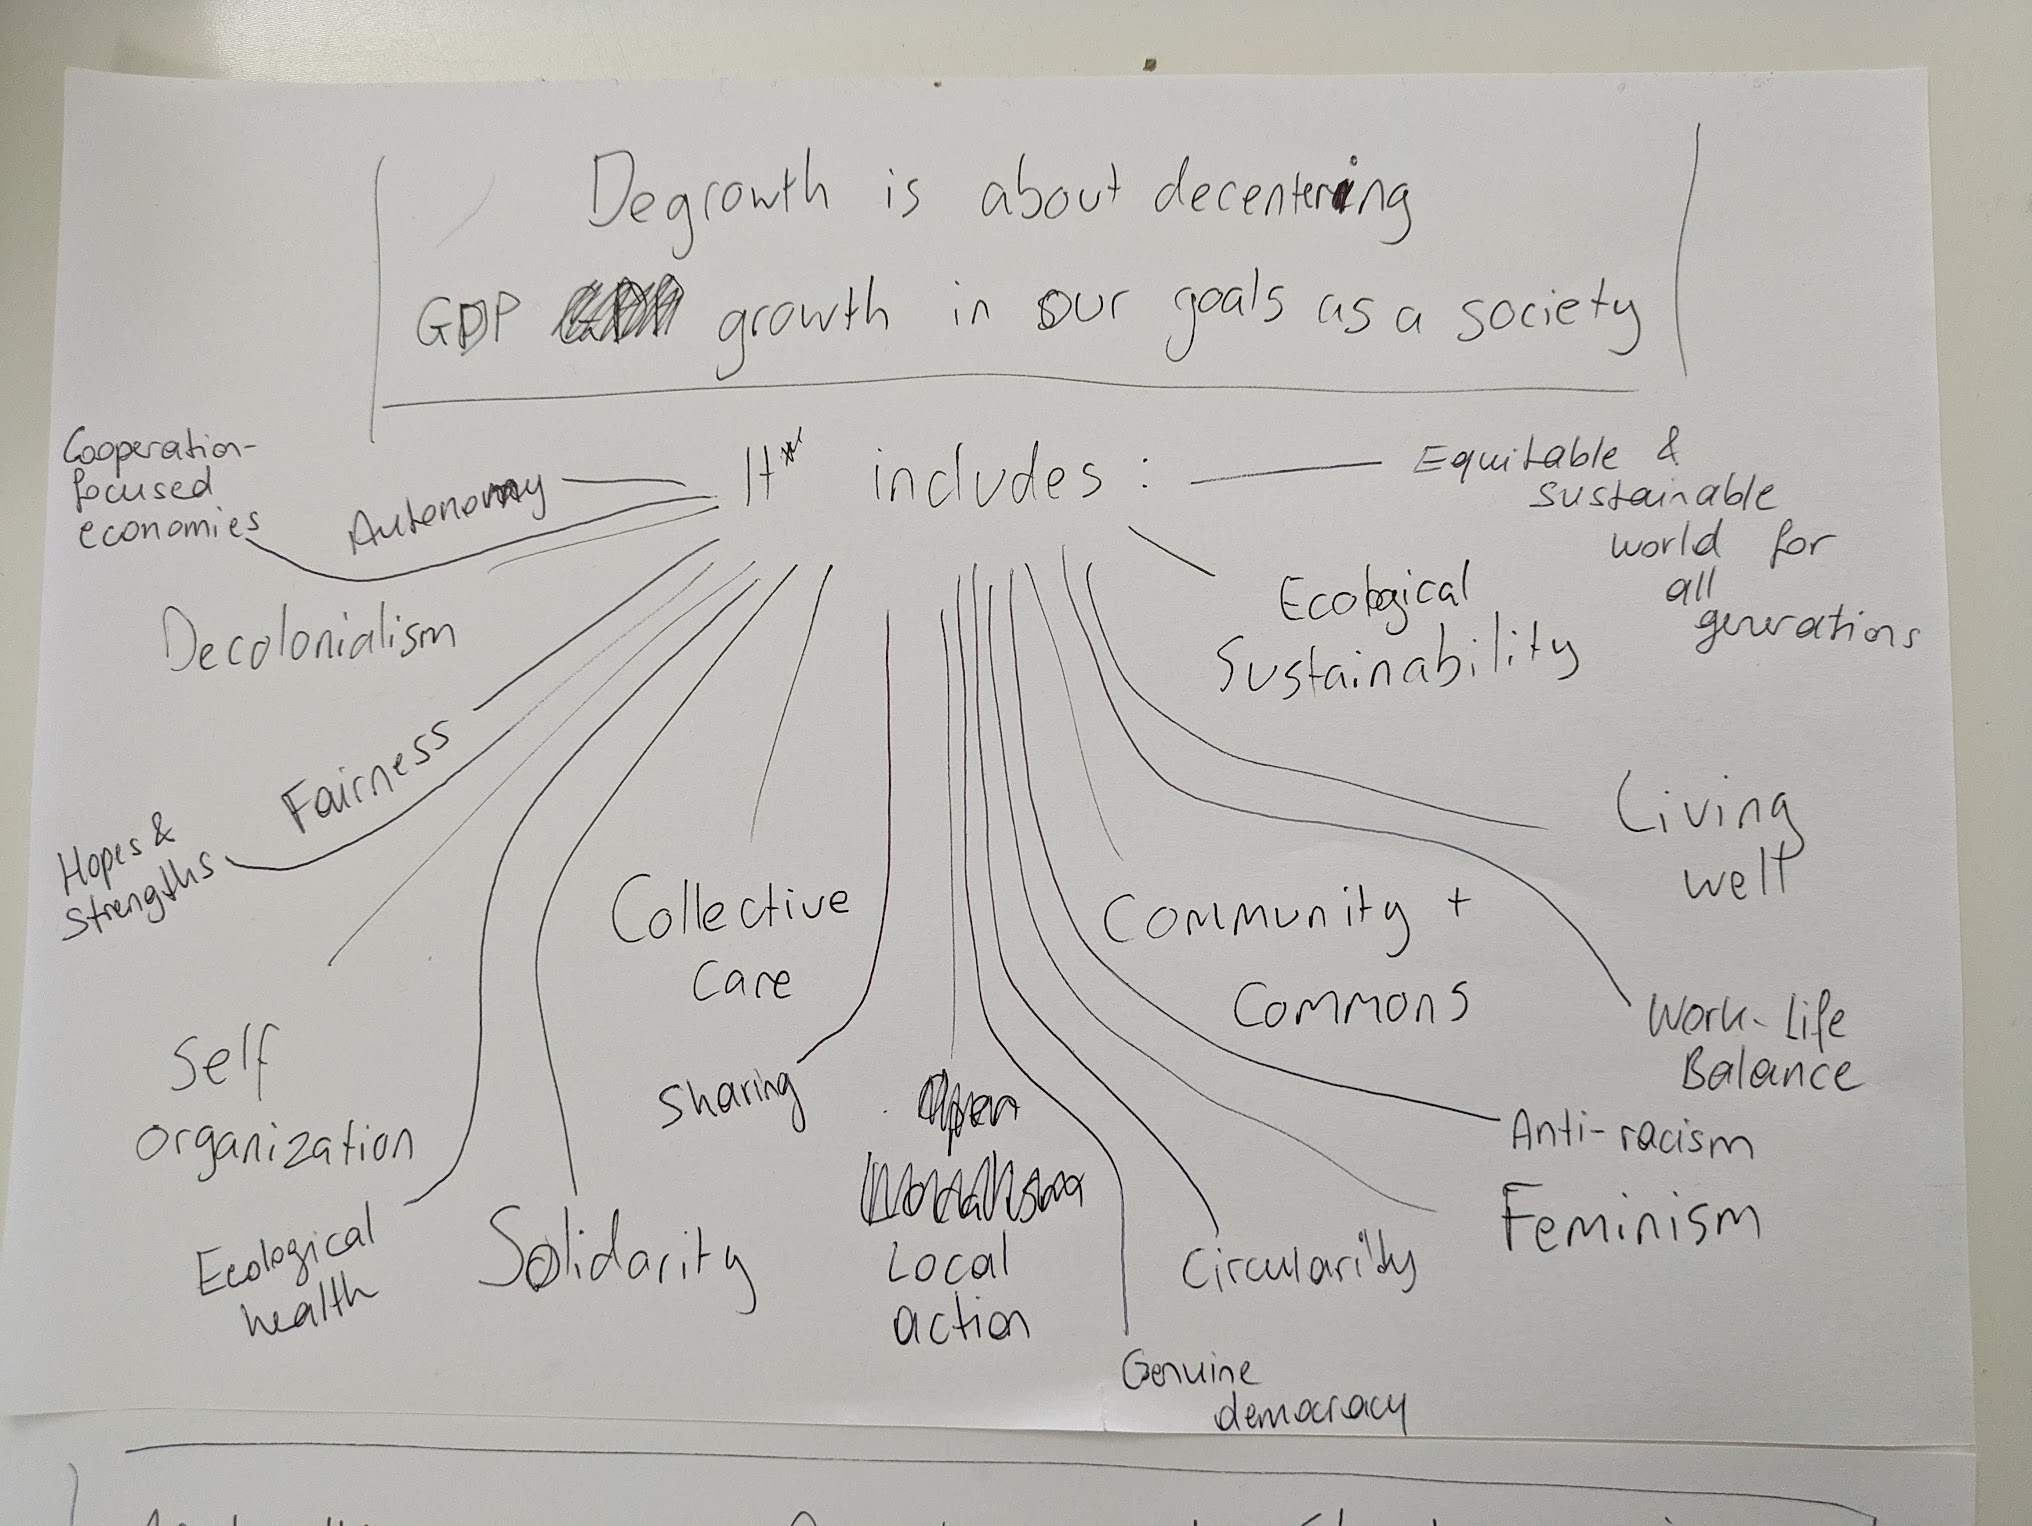 Degrowth is about decentering
GDP growth in our goals as a society
It* includes:
Cooperation-
focused
economies
Autonomy
Decolonialism
Fairness
Hopes &
Strengths
Self
organization
Ecological
health
Solidarity
Collective
care
sharing
Local
action
Genuine
democracy
Circularity
Feminism
Anti-racism
Community +
Commons
Work-Life
Balance
Living
well
Ecological
Sustainability
Equitable &
sustainable
world for
all
generations